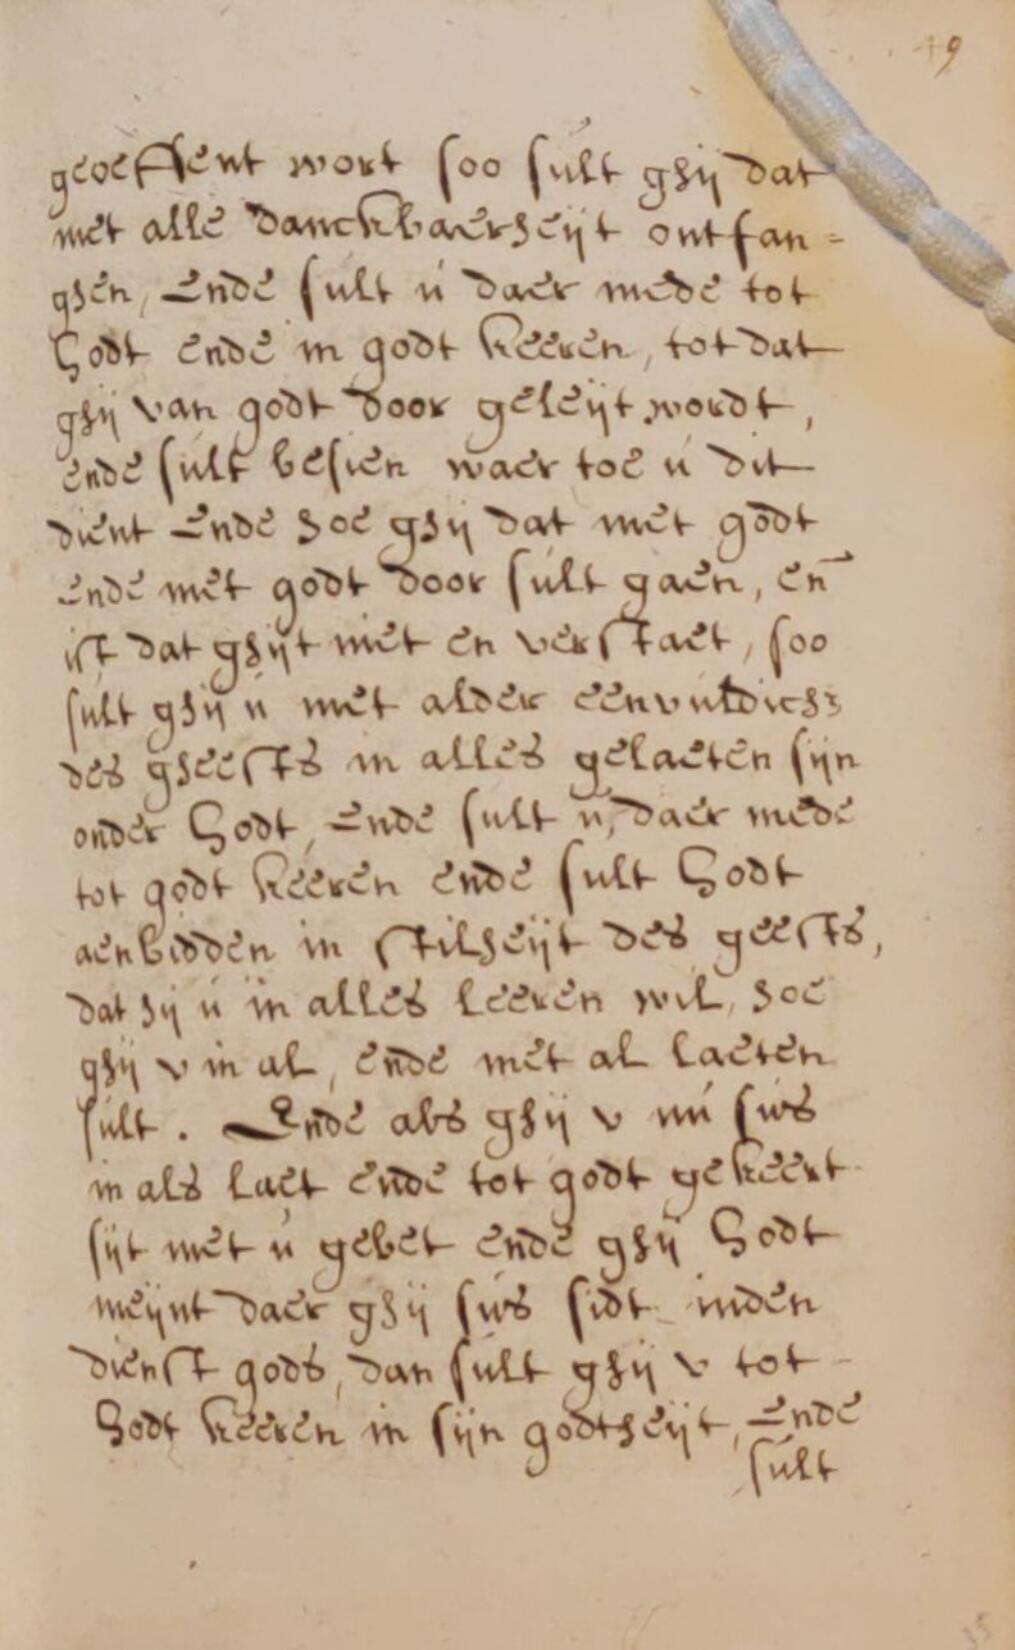 49
geoeffent wort soo sult ghij dat
met alle danckbaerheijt ontfan=
ghen, Ende sult ú daer mede tot
Godt ende in godt keeren, tot dat
ghij van godt door geleijt wordt,
ende sult besien waer toe ú dit
dient Ende hoe ghij dat met godt
ende met godt door sult gaen, en̄
ist dat ghijt niet en verstaet, soo
sult ghij ú met alder eenvuldich:
des gheests in alles gelaeten sijn
onder Godt, Ende sult ú, daer mede
tot godt keeren ende sult Godt
aenbidden in stilheijt des geests,
dat hij ú in alles leeren wil, hoe
ghij v in al, ende met al laeten
sult. Ende als ghij v nú sús
in als laet ende tot godt gekeert
sijt met ú gebet ende ghij Godt
meijnt daer ghij sús sidt inden
dienst gods, dan sult ghij v tot
Godt keeren in sijn godtheijt, Ende
sult